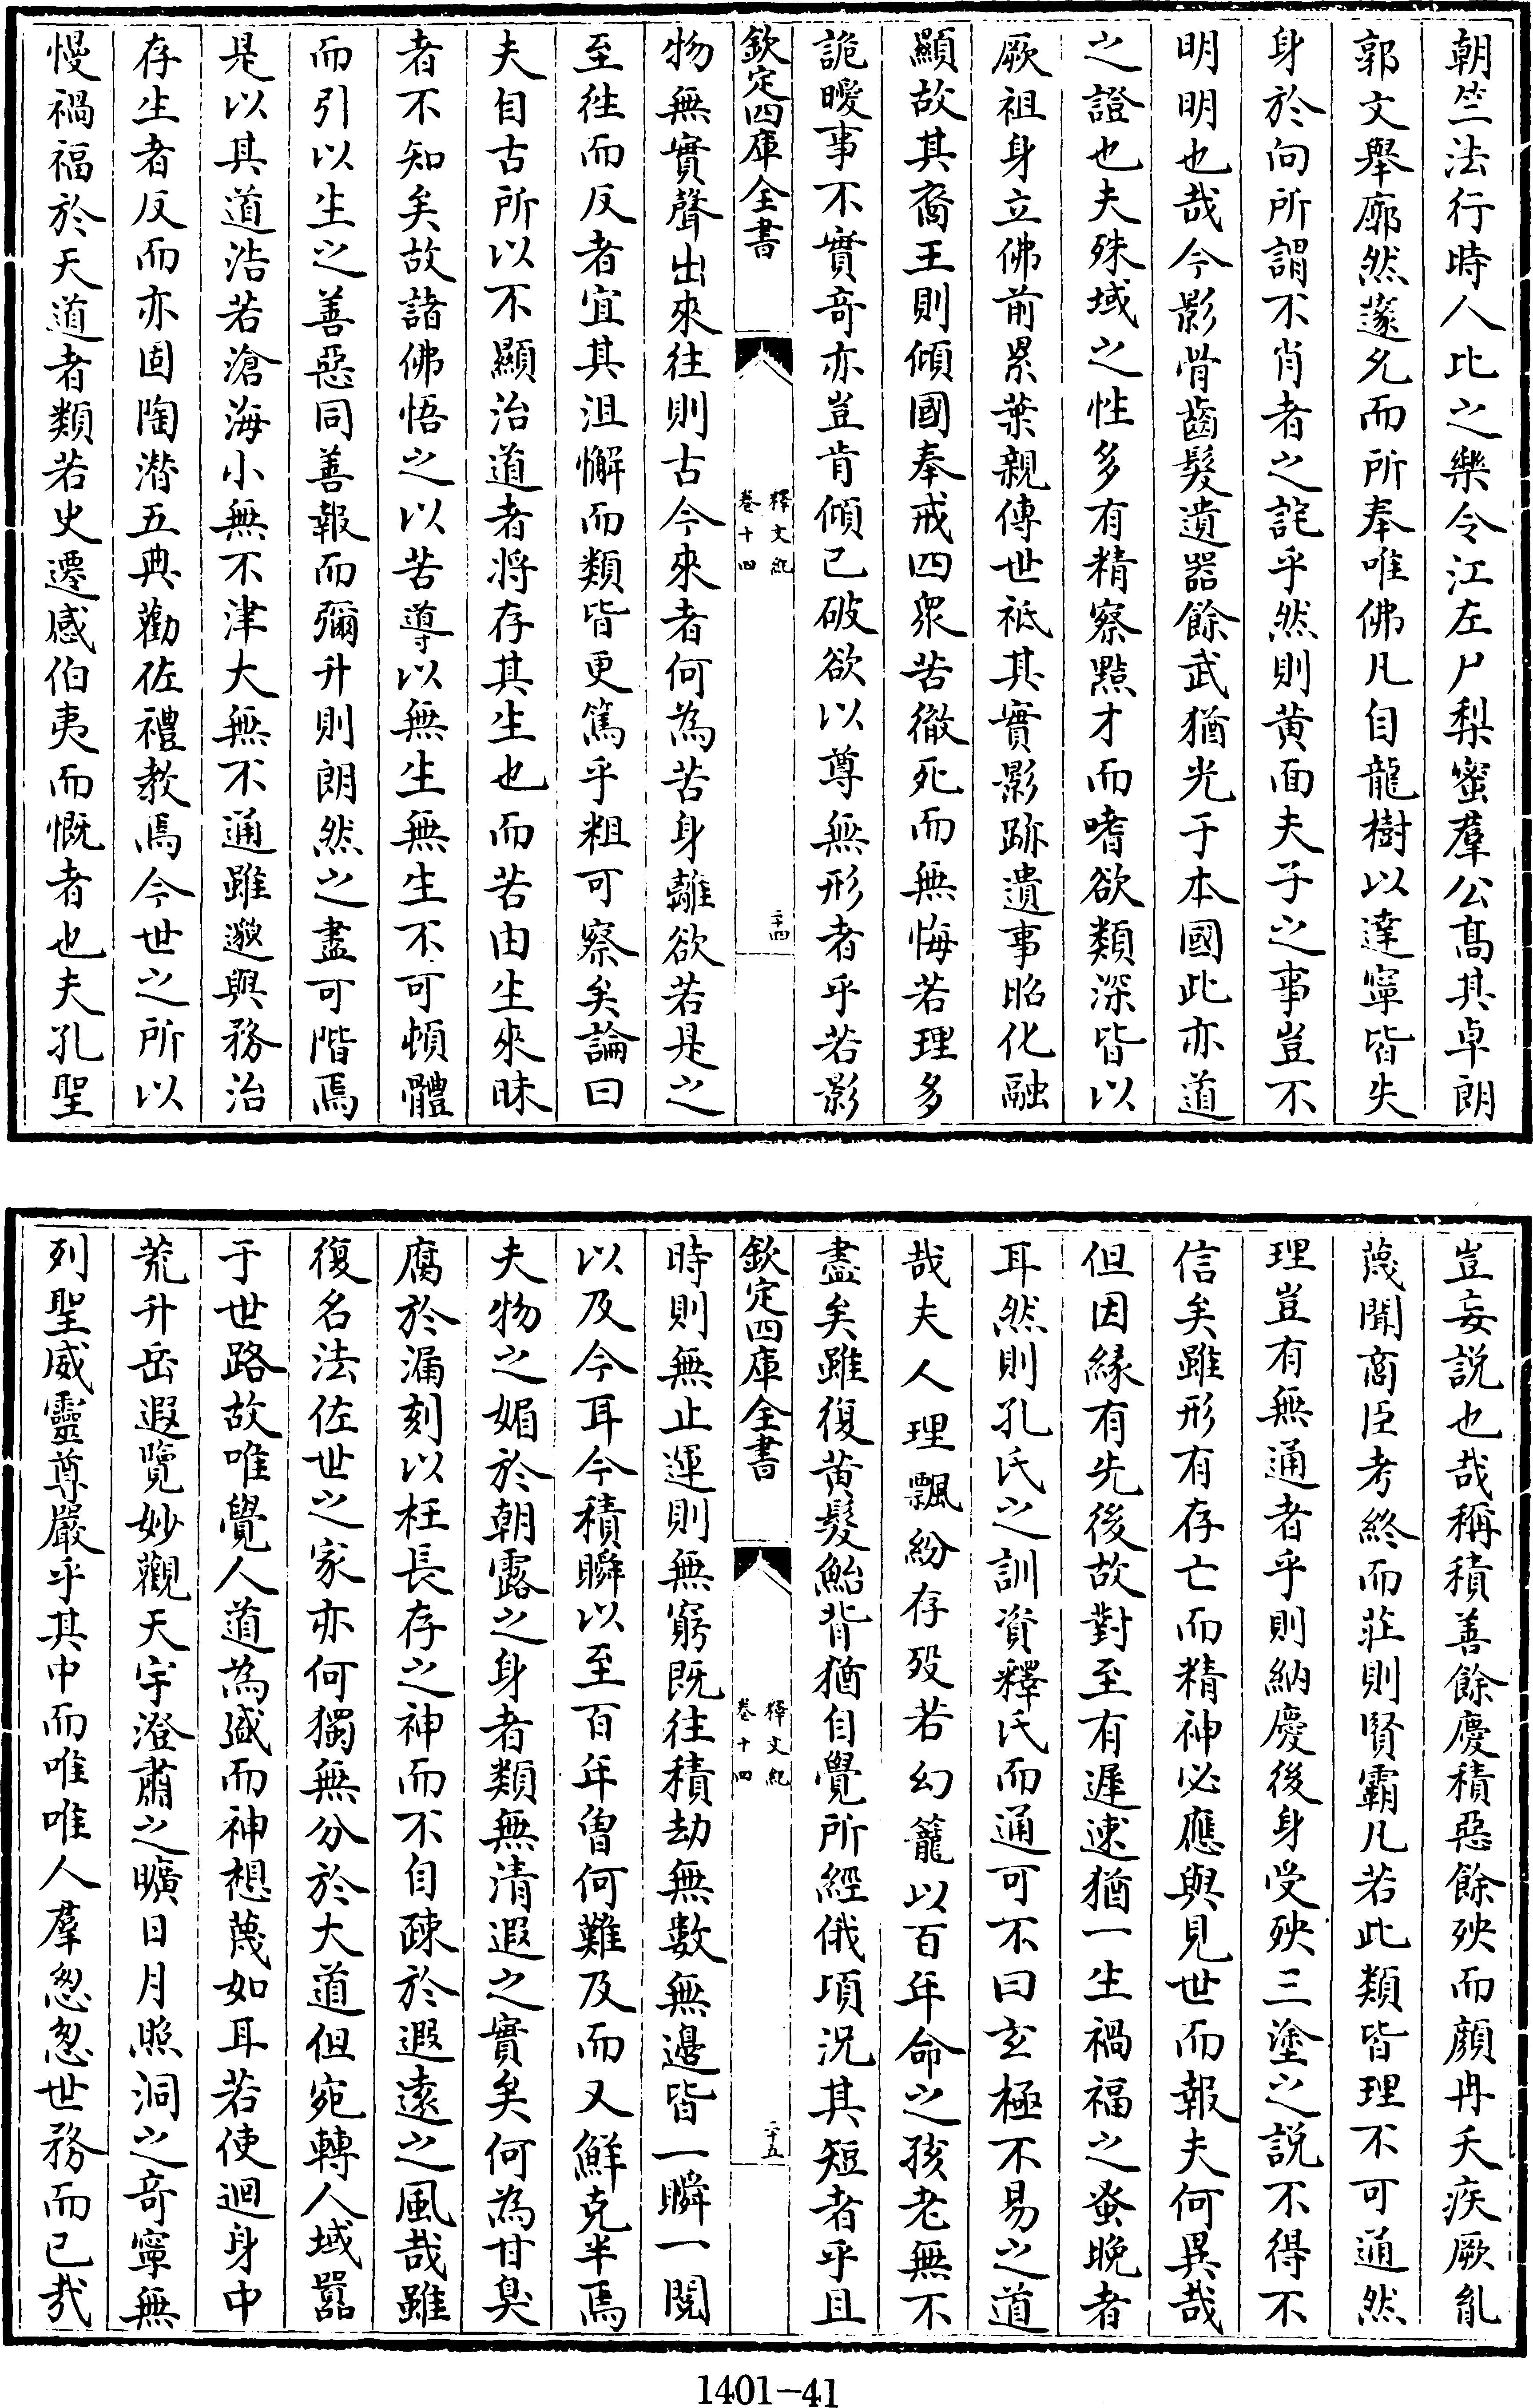 朝竺法行時人比之樂令江左尸梨蜜羣公髙其卓朗
郭文舉廓然邃允而所奉唯佛凡自龍樹以達寧皆失
身於向所謂不肖者之詑乎然則黄面夫子之事豈不
明明也哉今影骨齒髮遺器餘武猶光于本國此亦道
之證也夫殊域之性多有精察黠才而嗜欲類深皆以
厥祖身立佛前累葉親傳世祗其實影跡遺事昭化融
顯故其裔王則傾國奉戒四衆苦徹死而無悔若理多
詭曖事不實竒亦豈肯傾已破欲以尊無形者乎若影
欽定四庫全書
釋文紀
卷十四
二十四
物無實聲出來往則古今來者何為苦身離欲若是之
至徃而反者宜其沮懈而類皆更篤乎粗可察矣論曰
夫自古所以不顯治道者将存其生也而苦由生來昧
者不知矣故諸佛悟之以苦導以無生無生不可頓體
而引以生之善惡同善報而彌升則朗然之盡可階焉
是以其道浩若滄海小無不津大無不通雖邈與務治
存生者反而亦固陶潜五典勸佐禮教焉今世之所以
慢禍福於天道者類若史遷感伯夷而慨者也夫孔聖
豈妄説也哉稱積善餘慶積惡餘殃而顔冉夭疾厥胤
蔑聞商臣考終而莊則賢霸凡若此類皆理不可通然
理豈有無通者乎則納慶後身受殃三塗之説不得不
信矣雖形有存亡而精神必應與見世而報夫何異哉
但因緣有先後故對至有遲速猶一生禍福之蚤晚者
耳然則孔氏之訓資釋氏而通可不曰玄極不易之道
哉夫人理飄紛存殁若幻籠以百年命之孩老無不
盡矣雖復黄髮鮐背猶自覺所經俄項況其短者乎且
欽定四庫全書
釋文紀
卷十四
二十五
時則無止運則無窮既往積劫無數無邊皆一瞬一閲
以及今耳今積瞬以至百年曽何難及而又鮮克半焉
夫物之媚於朝露之身者類無清遐之實矣何為甘臭
腐於漏刻以枉長存之神而不自疎於遐遠之風哉雖
復名法佐世之家亦何獨無分於大道但宛轉人域囂
于世路故唯覺人道為盛而神想蔑如耳若使迴身中
荒升岳遐覽妙觀天宇澄肅之曠日月照洞之竒寧無
列聖威靈尊嚴乎其中而唯唯人羣怱怱世務而已哉
1401-41